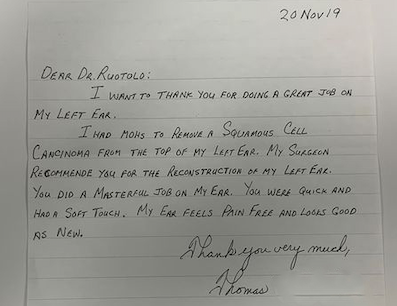 20 Nov 19
Dear Dr. Ruotolo:
I want to thank you for doing a great job on
my left ear.
I had Mohs to remove a Squamous Cell
Cancinoma from the top of my left ear. My surgeon
recommende you for the reconstruction of my left ear.
You did a masterful job on my ear. You were quick and
had a soft touch. My ear feels pain free and looks good
as new.
Thank you very much,
Thomas